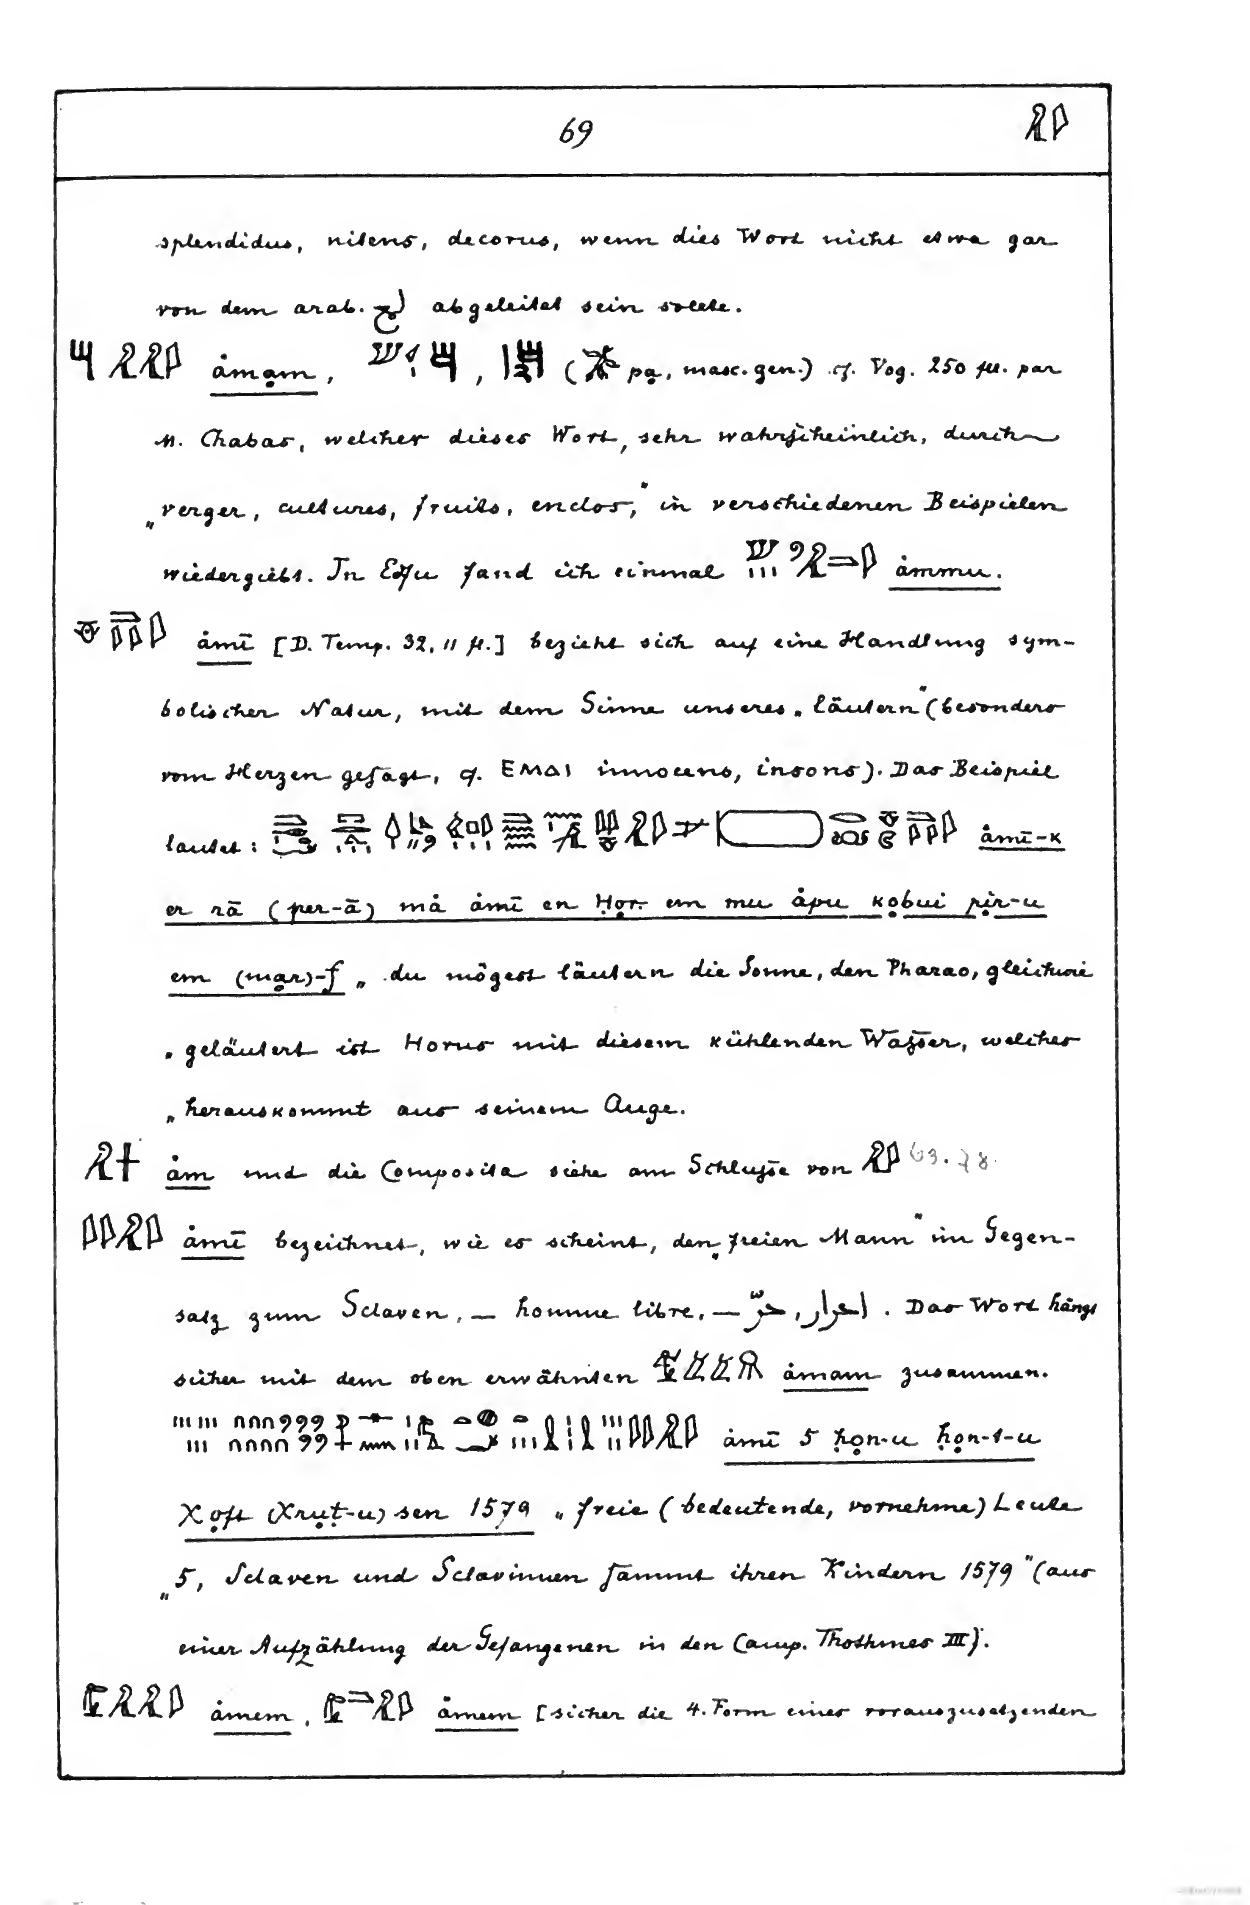 69
splendidus, nitens, decorus, wenn dies Wort nicht etwa gar
von dem arab. abgeleitet sein sollte.
ȧmạm, , ( pạ, masc. gen.) cf. Vog. 250 fll. par
M. Chabas, welcher dieses Wort, sehr wahrscheinlich, durch
„verger, cultures, fruits, enclos," in verschiedenen Beispielen
wiedergiebt. In Edfu fand ich einmal ȧmmu.
ȧmī [D. Temp. 32, 11 fl.] bezieht sich auf eine Handlung sym-
bolischer Natur, mit dem Sinne unseres „läutern" (besonders
vom Herzen gesagt, cf. innocens, insons). Das Beispiel
lautet: ȧmī-k
er rā (per-ā) mȧ ȧmī en Ḥọr em mu ȧpu kọbui pịr-u
em (mạr)-f „du mögest läutern die Sonne, den Pharao, gleichwie
„geläutert ist Horus mit diesem kühlenden Wasser, welches
„herauskommt aus seinem Auge.
ȧm und die Composita siehe am Schlusse von
ȧmī bezeichnet, wie es scheint, den „freien Mann" im Gegen-
satz zum Sclaven, — homme libre, — حرّ, احرار. Das Wort hängt
sicher mit dem oben erwähnten ȧmam zusammen.
ȧmī 5 ḥọn-u ḥọn-t-u
Xọft (Xrụṭ-u) sen 1579 „freie (bedeutende, vornehme) Leute
„5, Sclaven und Sclavinnen sammt ihren Kindern 1579" (aus
einer Aufzählung der Gefangenen in den Camp. Thothmes III).
ȧmem, ȧmem [sicher die 4. Form eines vorauszusetzenden